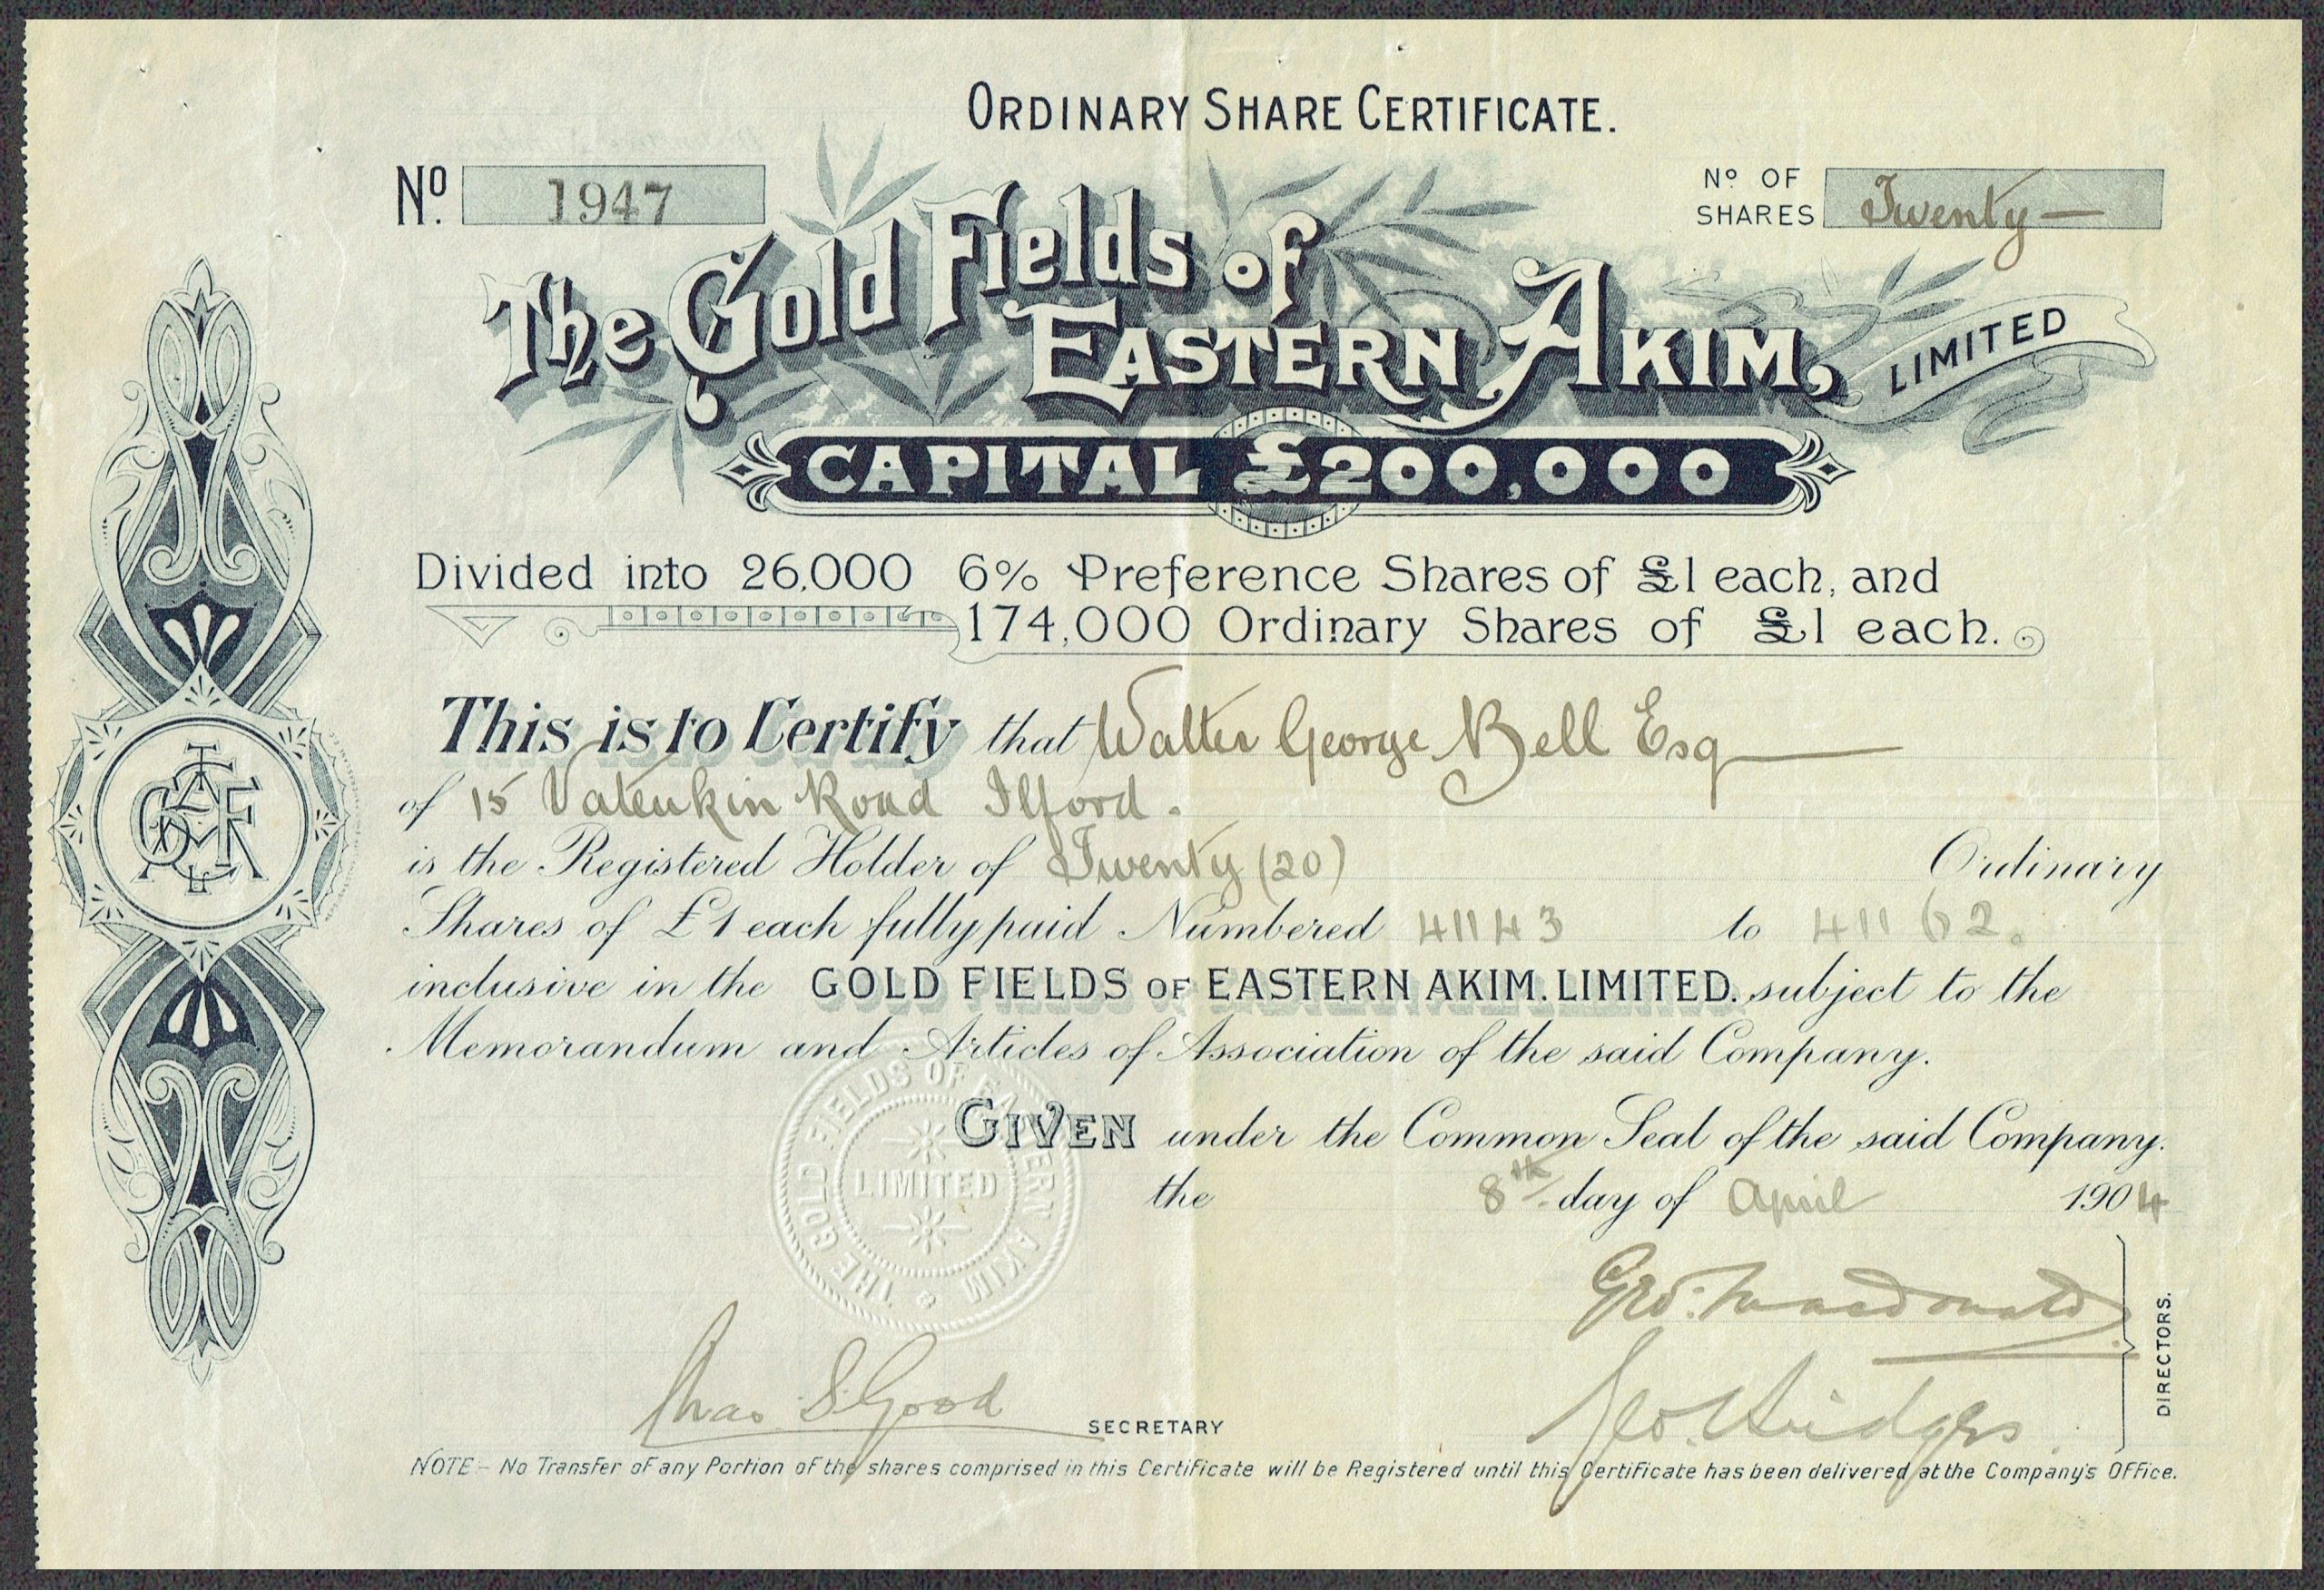 ORDINARY SHARE CERTIFICATE.
No. 1947
No OF SHARES Twenty —
The Gold Fields of
EASTERN AKIM, LIMITED
CAPITAL £200,000
Divided into 26,000 6% Preference Shares of £1 each, and
174,000 Ordinary Shares of £1 each.
This is to Certify that Walter George Bell Esq
of 15 Road Ilford.
is the Registered Holder of Twenty (20) Ordinary
Shares of £1 each fully paid Numbered 41143 to 41162.
inclusive in the GOLD FIELDS OF EASTERN AKIM. LIMITED. subject to the
Memorandum and Articles of Association of the said Company.
GIVEN under the Common Seal of the said Company.
the 8th day of April 1904
THE GOLD FIELDS OF EASTERN AKIM
LIMITED
Geo: Macdonald
Chas S. Good SECRETARY
Geo. Hidges
DIRECTORS.
NOTE – No Transfer of any Portion of the shares comprised in this Certificate will be Registered until this Certificate has been delivered at the Company's Office.